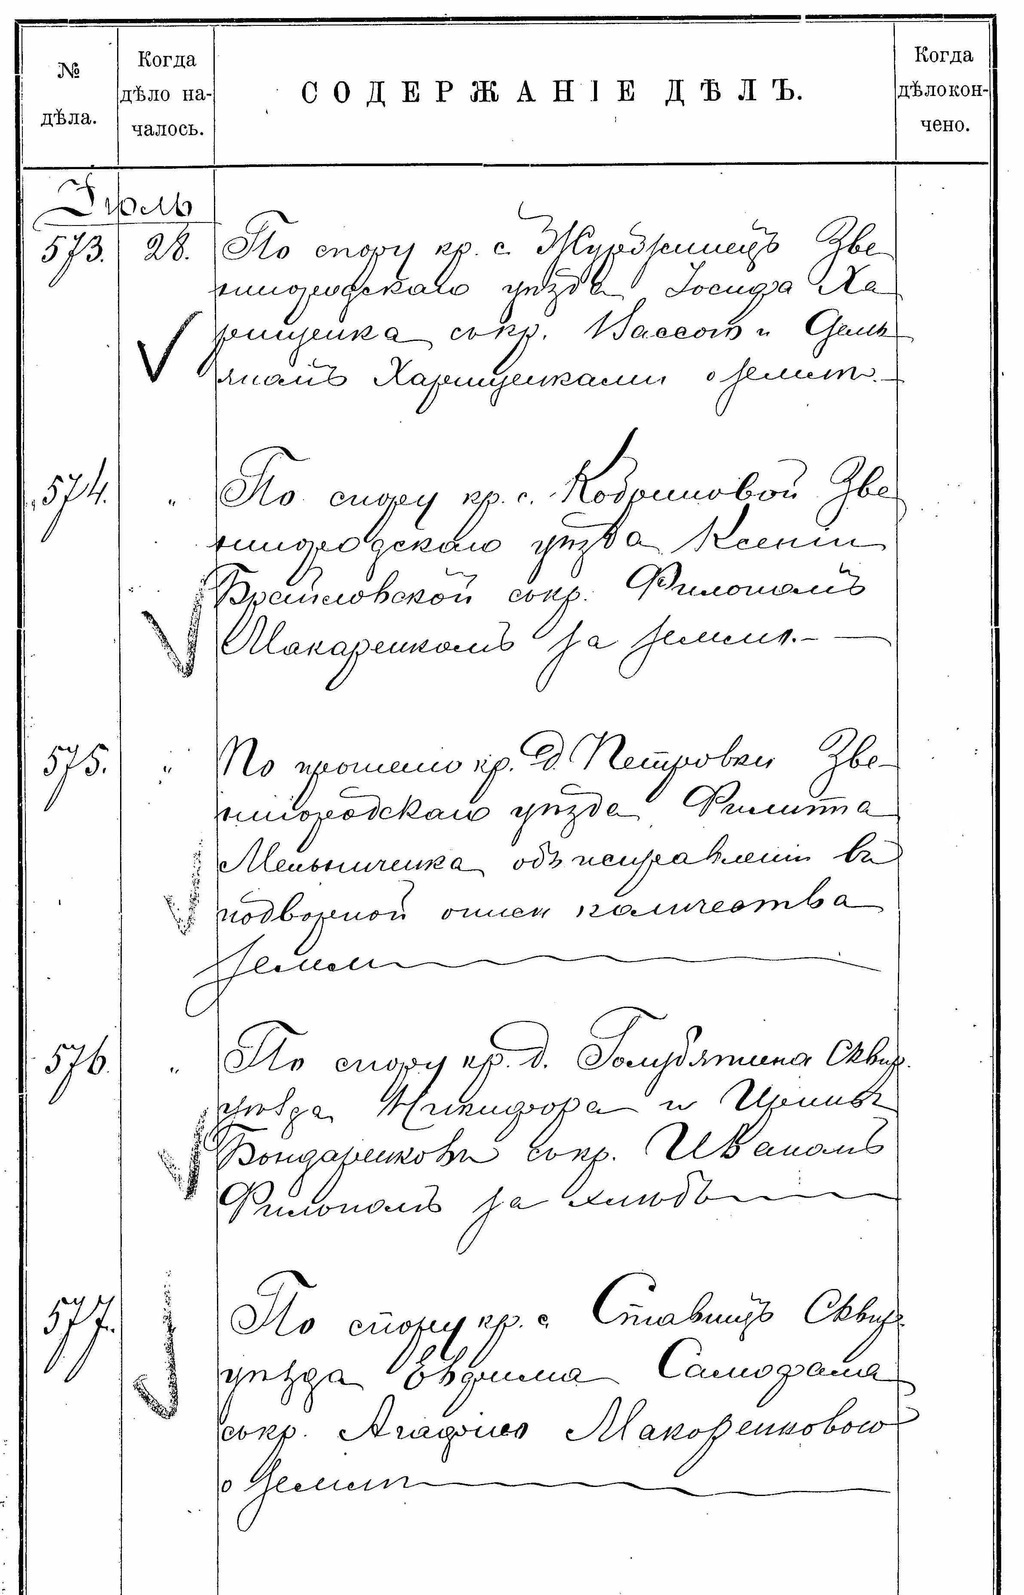 № дѣла.
Когда дѣло на-чалось.
СОДЕРЖАНІЕ ДѢЛЪ.
Когда дѣло кон-чено.
Іюль
573. 28. По спору кр. с. Журжинецъ Зве
нигородскаго уѣзда Іосифа Ха
рищенка съ кр. Вассой и Демь
яномъ Харищенками о землѣ.—
574. " По спору кр. с. Кобриновой Зве
нигородскаго уѣзда Ксеніи
Браиловской съ кр. Филономъ
Макаренкомъ за землю.—
575. " По прошению кр. д. Петровки Зве-
нигородскаго уѣзда Филиппа
Мельниченка объ исправленіи въ
подворной описи количества
земли
576. " По спору кр. д. Голубятина Сквир.
уѣзда Никифора и Ирины
Бондаренковы съ кр. Иваномъ
Филономъ за хлѣбъ
577. По спору кр. с. Ставищъ Сквир.
уѣзда Евфима
съ кр. Агафіею Макаренковою
о землѣ